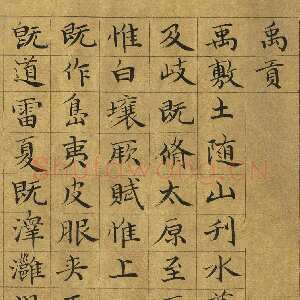 禹貢
禹敷土随山刋水
及岐既脩太原至
惟白壤厥賦惟上
既作島夷皮服夹
既道雷夏既澤灉